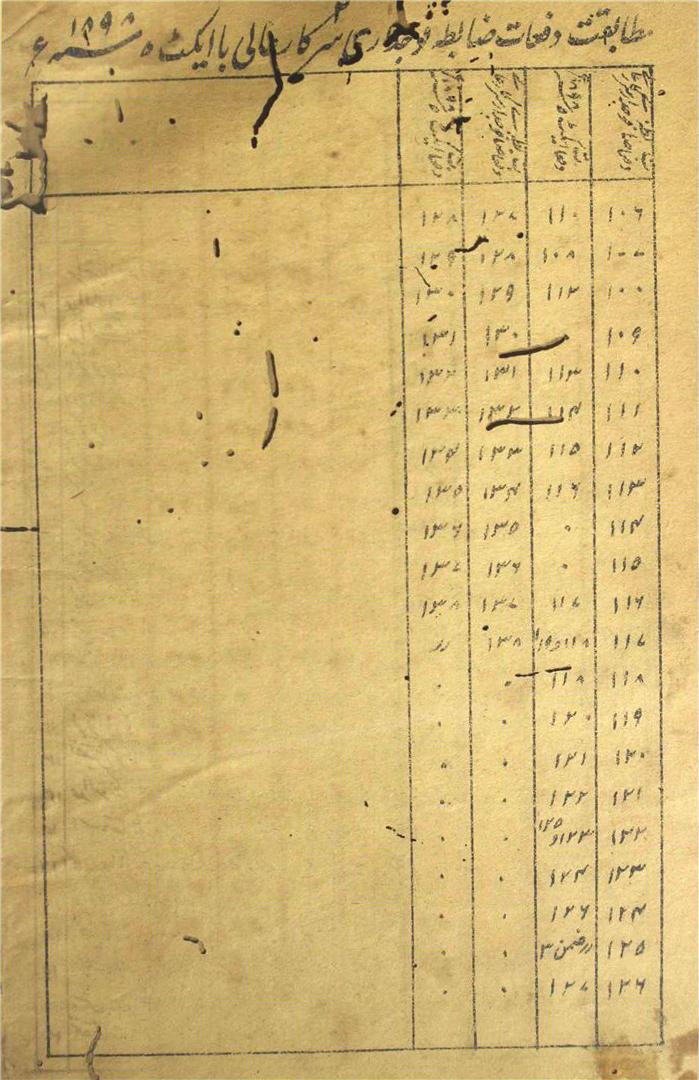 مطابقت دفعات ضابطہ فوجداری سرکار عالی با ایکٹ ۵ ۱۸۹۸ سنہ ء
۱۰۶ ۱۱۰ ۱۲۷ ۱۲۸
۱۰۷ ۱۰۸ ۱۲۸ ۱۲۹
۱۰۰ ۱۱۲ ۱۲۹ ۱۳۰
۱۰۹ ۰ ۱۳۰ ۱۳۱
۱۱۰ ۱۱۳ ۱۳۱ ۱۳۲
۱۱۱ ۱۱۴ ۱۳۲ ۱۳۳
۱۱۲ ۱۱۵ ۱۳۳ ۱۳۴
۱۱۳ ۱۱۶ ۱۳۴ ۱۳۵
۱۱۴ ۰ ۱۳۵ ۱۳۶
۱۱۵ ۰ ۱۳۶ ۱۳۷
۱۱۶ ۱۱۷ ۱۳۷ ۱۳۸
۱۱۷ ۱۱۸و۱۱۹ ۱۳۸ رر
۱۱۸ ۱۱۸ ۰ ۰
۱۱۹ ۱۲۰ ۰ ۰
۱۲۰ ۱۲۱ ۰ ۰
۱۲۱ ۱۲۲ ۰ ۰
۱۲۲ ۱۲۳و۱۲۵ ۰ ۰
۱۲۳ ۱۲۴ ۰ ۰
۱۲۴ ۱۲۶ ۰ ۰
۱۲۵ ررضمن ۳ ۰ ۰
۱۲۶ ۱۲۷ ۰ ۰